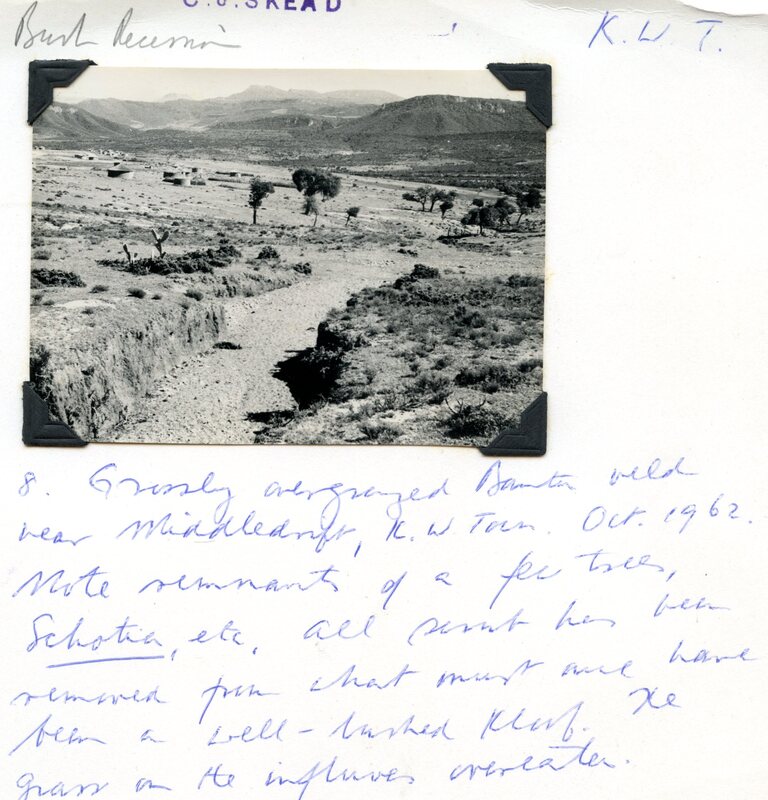 C.J. SKEAD
Bush Recession
K.W.T.
8. Grossly overgrazed Bantu veld
near Middledrift, K.W Town. Oct. 1962.
Note remnants of a few trees,
Schotia, etc. All scrub has been
removed from what must once have
been a well-bushed kloof. The
grass on the interfluves overeaten.